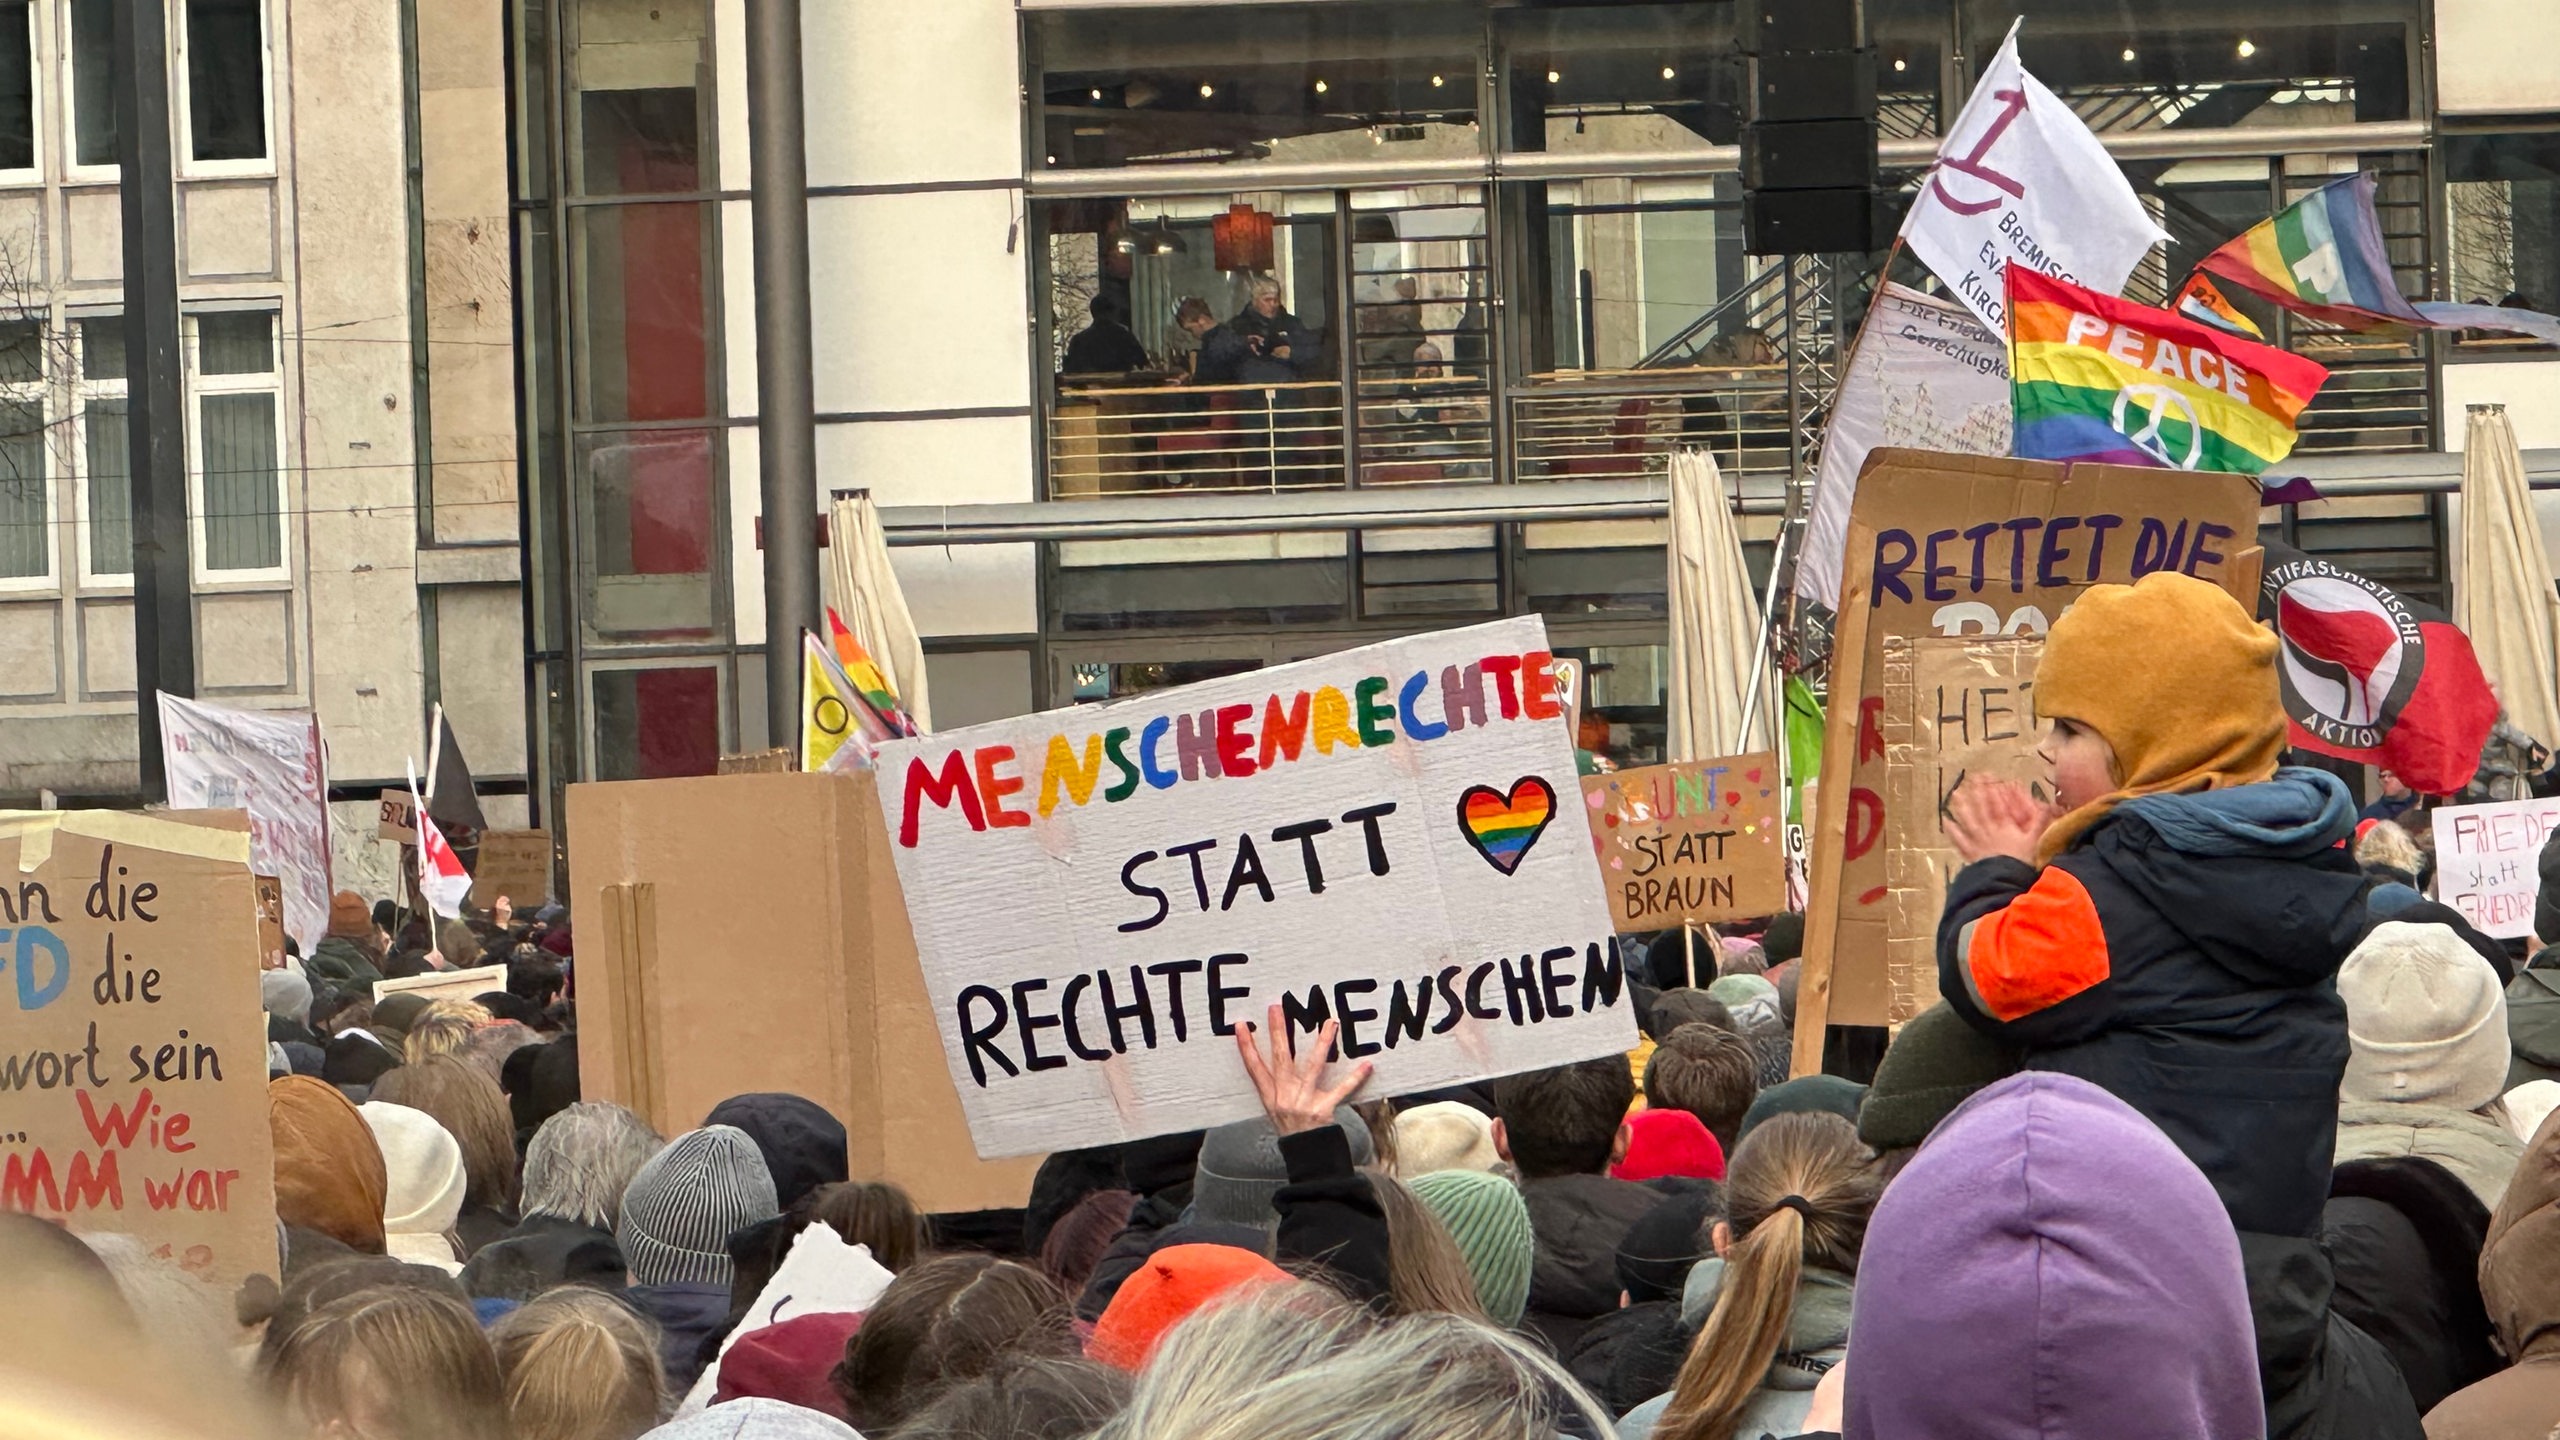 BREMISCHE
KIRCH
Gerechtigke
PEACE
P
RETTET DIE
ANTIFASCHISTISCHE
AKTION
MENSCHENRECHTE
STATT
RECHTE MENSCHEN
BUNT
STATT
BRAUN
HET
nn die
FD die
wort sein
... Wie
MM war
FRIEDE
statt
FRIEDR